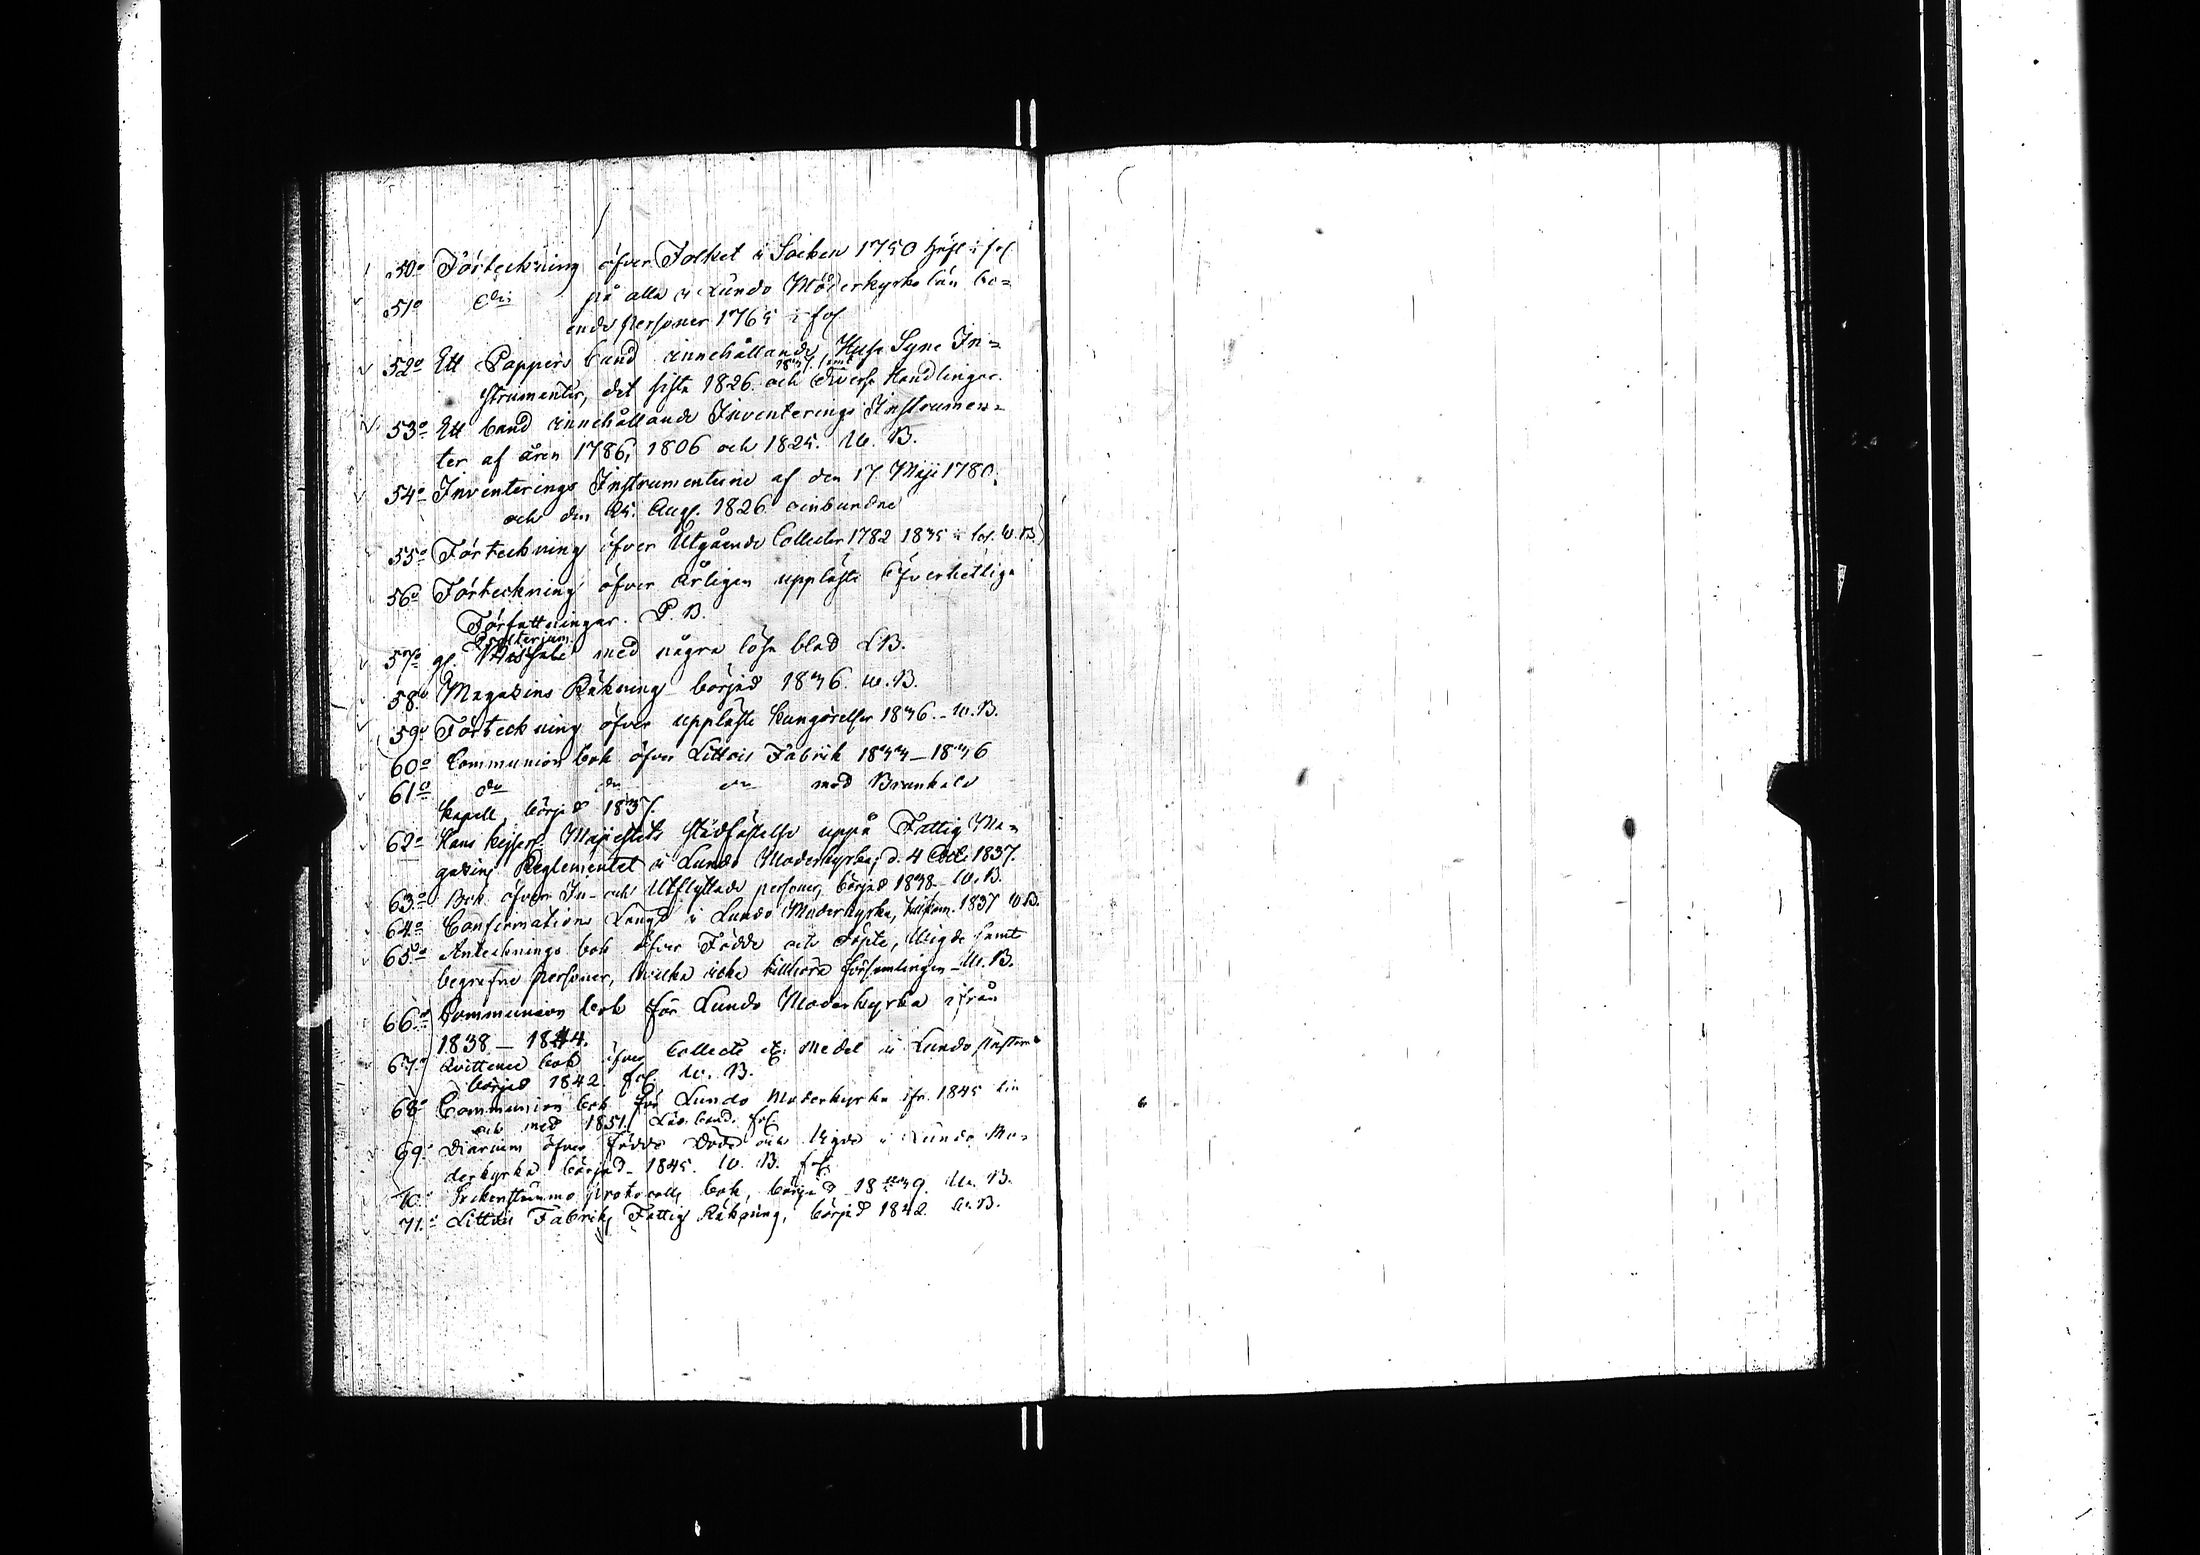 50o Förteckning öfver Folket i Socken 1750 häft i fol.
51o do på alla i Lundo Moderkyrko län bo=
ende personer 1765 i fol.
52o Ett Pappers band innehållande Huse Syne In=
strumenter, det sista 1826. och Diverse Handlingar.
53o Ett band innehållande Inventerings Instrumen=
ter af åren 1786, 1806 och 1825. W. B.
54o Inventerings Instrumenterne af den 17 Maji 1780.
och den 25. Aug. 1826 oinbundne
55o Förteckning öfver Utgående Collecter 1782 1835 i fol. W. B.
56o Förteckning öfver årligen uppläste Öfverhetliga
Författningar. P. B.
57o gl. Psalterium med några lösa blad LB.
58o Magasins Räkning börjad 1836. W. B.
59o Förteckning öfver uppläste kungörelser 1836. W. B.
60o Communion bok öfver Littois Fabrik 1833–1836
61o do do do med Brunkala
Kapell, börjad 1837.
62o Hans Kejserl. Majestets stadfästelse uppå Fattig Ma=
gasins Reglementet i Lundo Moderkyrka, d. 4 Oct. 1837.
63o Bok öfver In- och Utflyttade personer, börjad 1838. W. B.
64o Confirmations Längd i Lundo Moderkyrka, 1837 W. B.
65o Antecknings bok öfver Födde och Döpte, Wigde samt
begrafne personer, hvilka icke tillhöra församlingen – W. B.
66o Communion bok för Lundo Moderkyrka ifrån
1838 – 1844.
67o Quittence bok öfver Collect etc. medel i Lundo
börjad 1842. fol. W. B.
68o Communion bok för Lundo Moderkyrka ifr. 1845 till
och med 1851. band. fol.
69o Diarium öfver Födde Döde och Wigde i Lundo Mo=
derkyrka börjad 1845. W. B. fol.
70o Sockenstämmo protocolls bok, börjad 1839. W. B.
71o Littois Fabriks Fattig Räkning, börjad 1842. W. B.